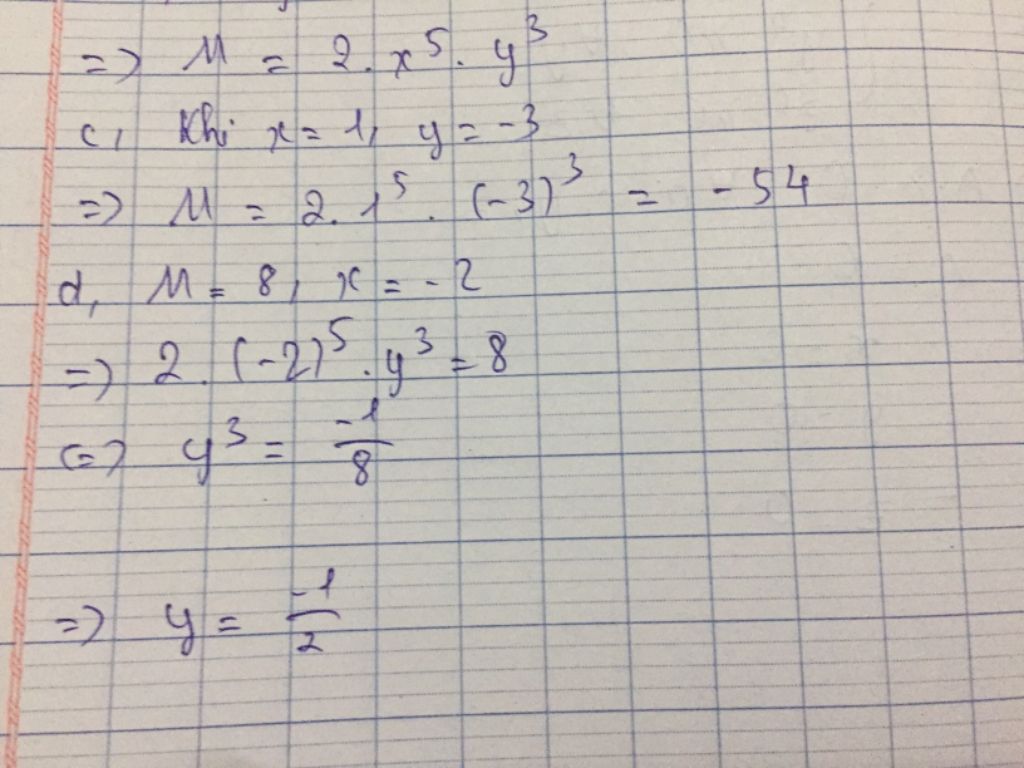 => M = 2. x⁵. y³
c, Khi x = 1, y = -3
=> M = 2. 1⁵. (-3)³ = -54
d, M = 8, x = -2
=> 2. (-2)⁵. y³ = 8
<=> y³ = -1/8
=> y = -1/2